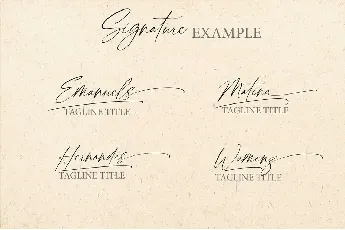 Signature EXAMPLE
Emanuels
TAGLINE TITLE
Malina
TAGLINE TITLE
Hernandes
TAGLINE TITLE
TAGLINE TITLE